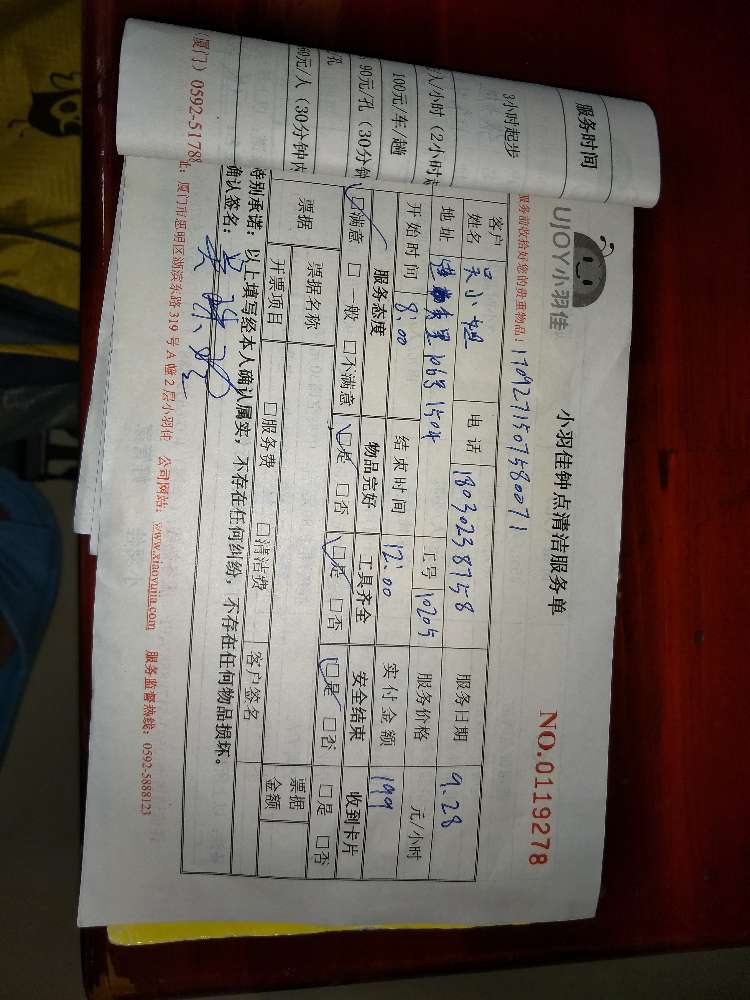 服务时间
3小时起步
人/小时（2小时
100元/车/趟
90元/孔（30分钟
60元/人（30分钟内
UJOY小羽佳
小羽佳钟点清洁服务单
NO.0119278
服务前收拾好您的贵重物品！
170927150758007 1
客户姓名 吴小姐 电话 18030238758 服务日期 9.28
地址 106号1504 工号 10205 服务价格 元/小时
开始时间 8:00 结束时间 12:00 实付金额 199
服务态度 物品完好 工具齐全 安全结束 收到卡片
☑满意 □一般 □不满意 ☑是 □否 ☑是 □否 ☑是 □否 □是 □否
票据 票据名称 票据金额
开票项目 □服务费 □清洁费 客户签名
特别承诺：以上填写经本人确认属实，不存在任何纠纷，不存在任何物品损坏。
确认签名：
址：厦门市思明区湖滨东路319号A幢2层小羽佳 公司网站：www.xiaoyujia.com 服务监督热线：0592-5888123
（厦门）0592-5178